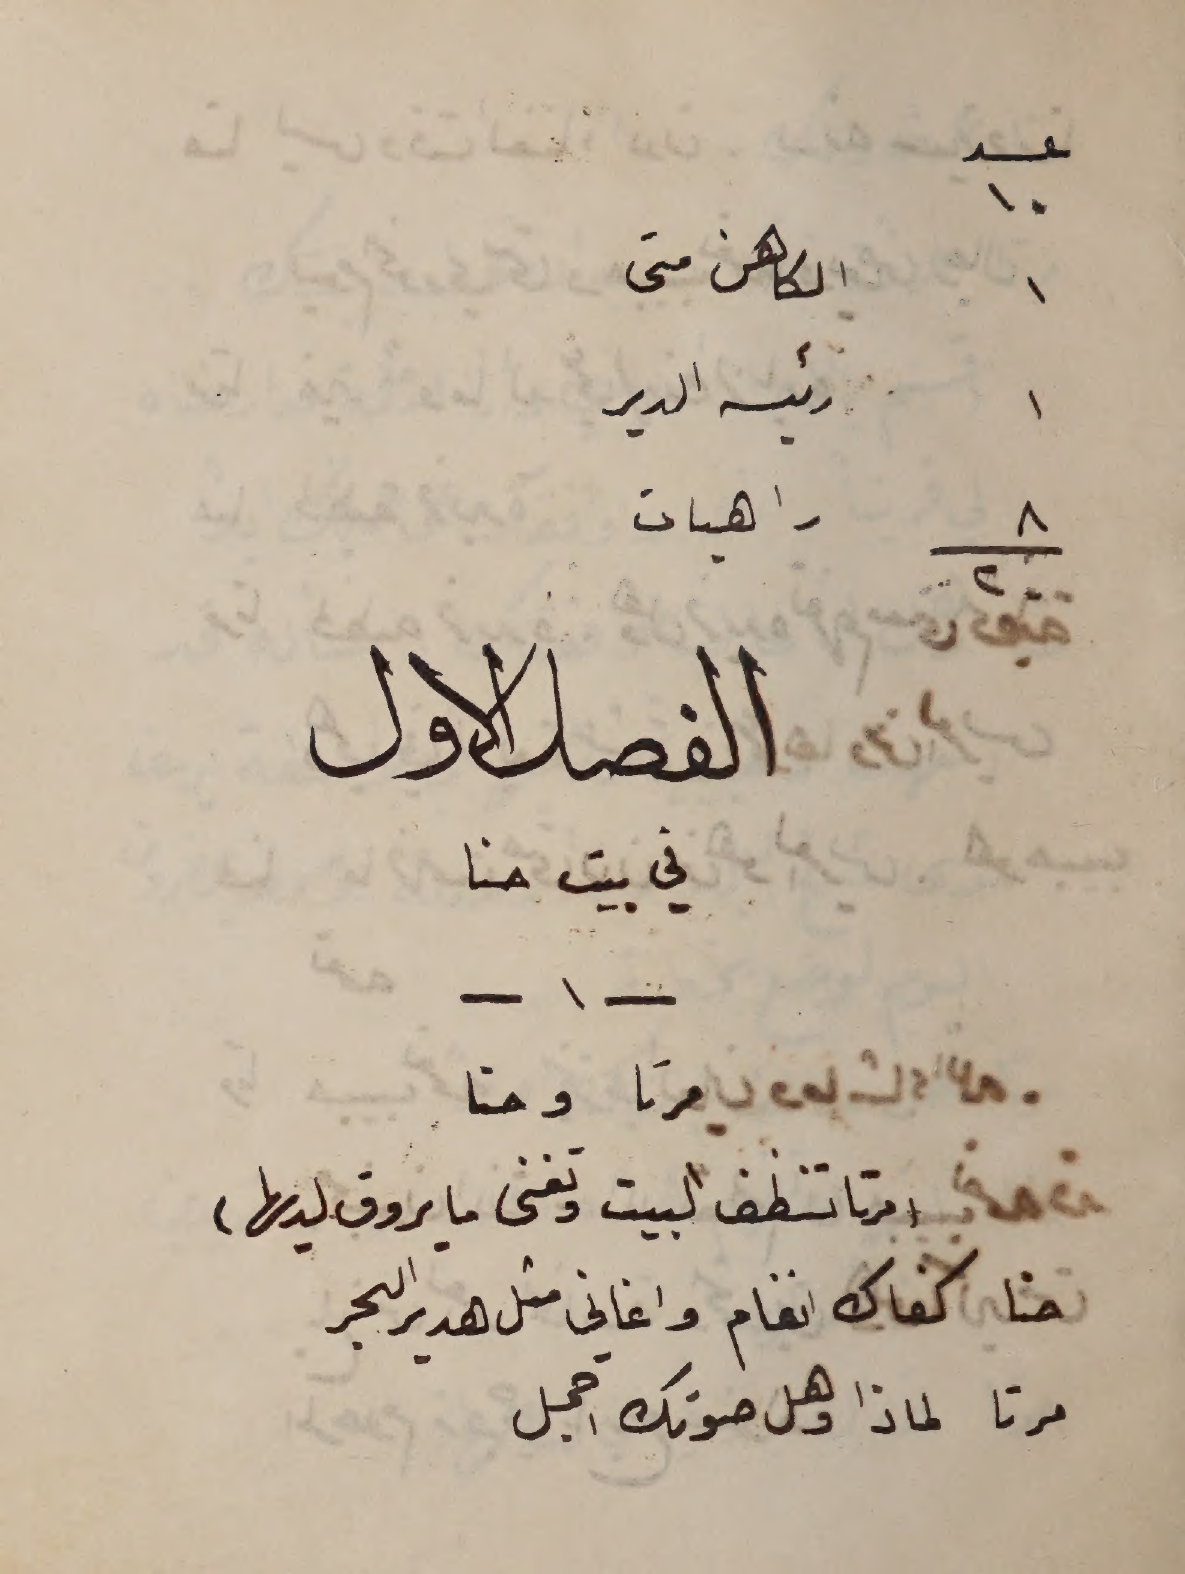 عــد
١٠
١ الكاهن متى
١ رئيسه الدير
٨ راهبات
٢٠
الفصل الاول
في بيت حنا
— ١ —
مرتا وحنا
(مرتا تنظف البيت وتغني ما يروق لديها)
حنا كفاك انغام واغاني مثل هدير البحر
مرتا لماذا وهل صوتك اجمل